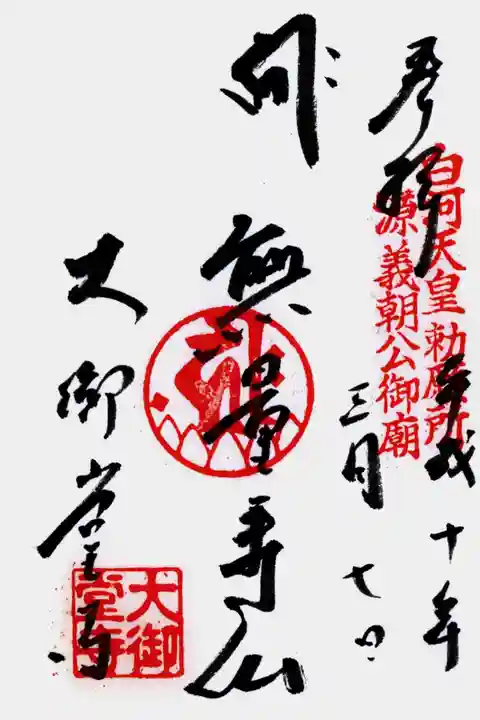 奉拝
白河天皇勅願所
源義朝公御廟
平成十年
三月七日
無量寿山
大御堂寺
大御
堂寺